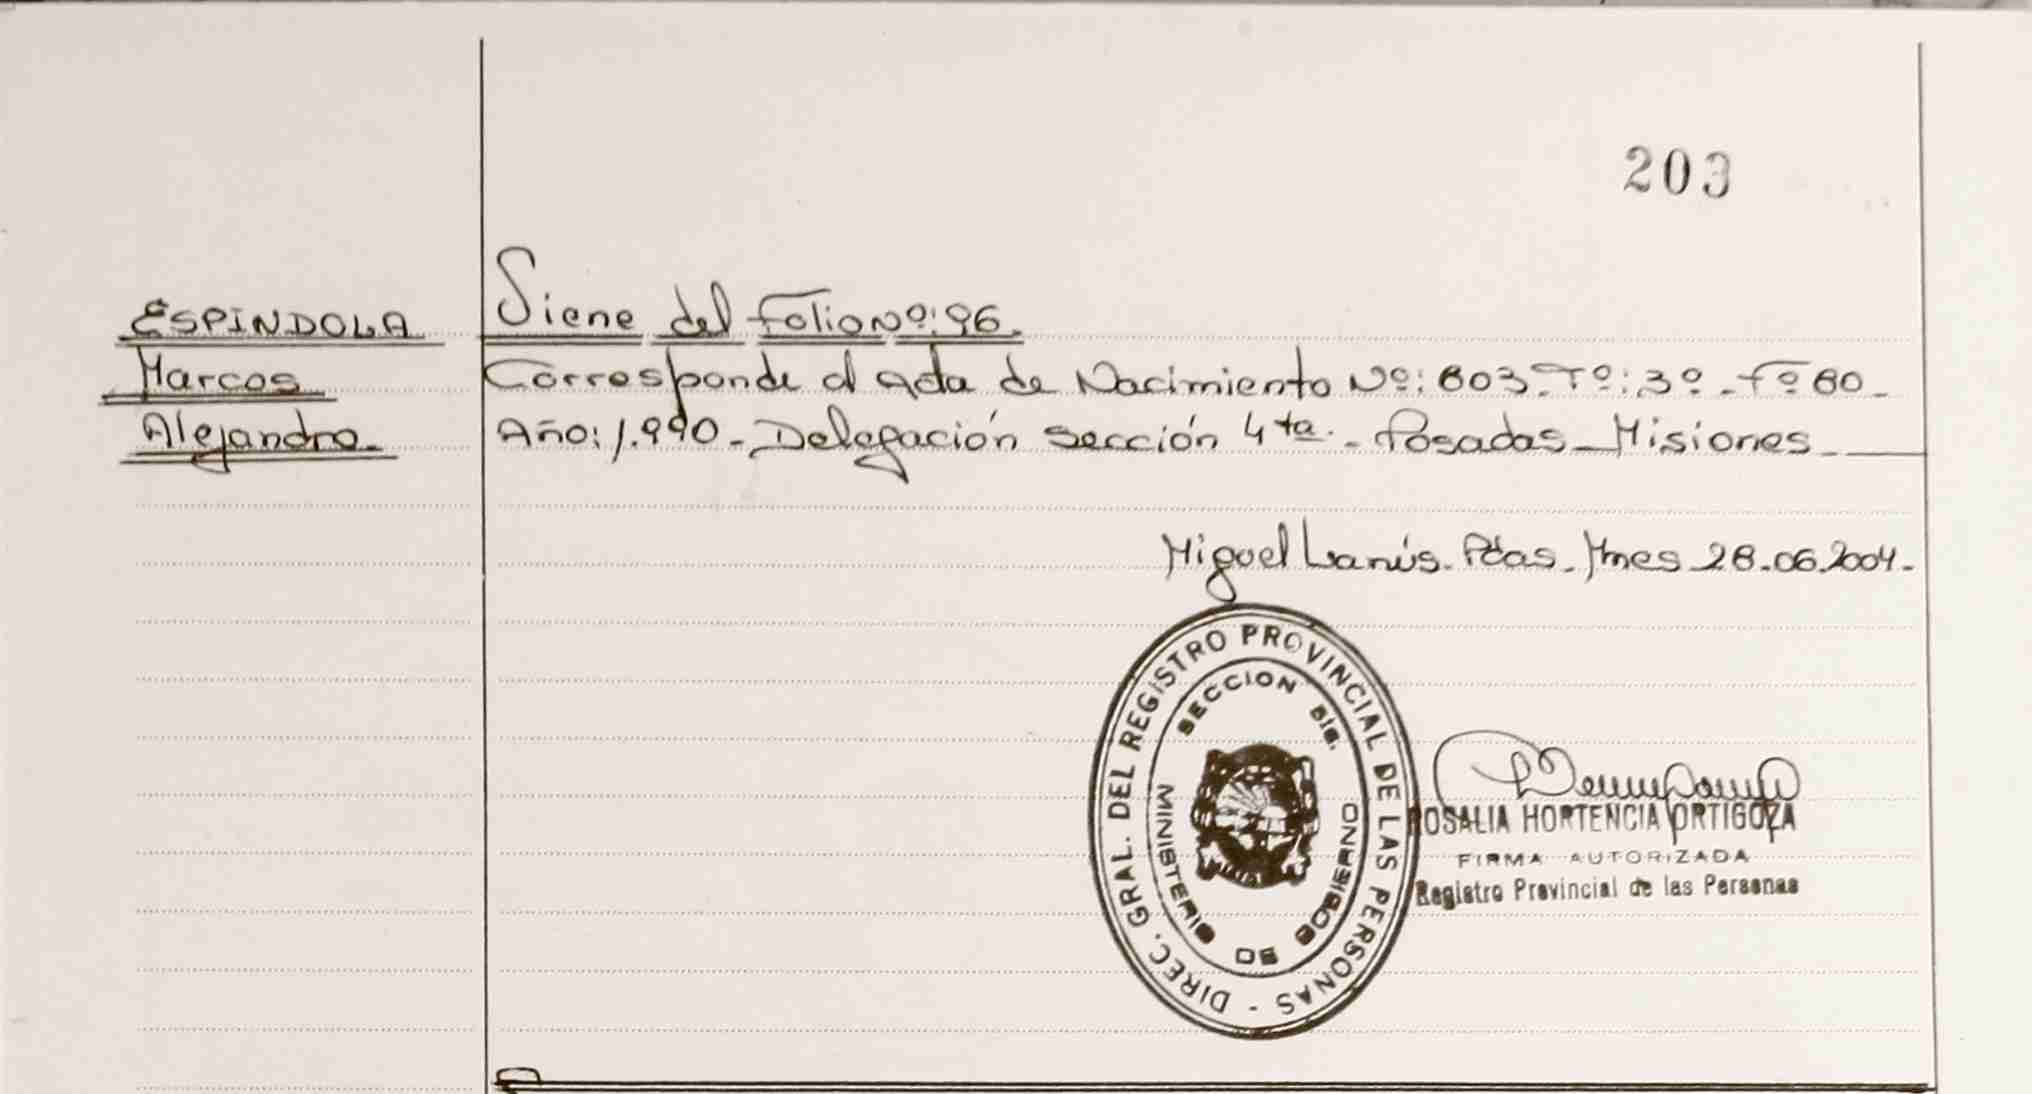 203
ESPINDOLA
Marcos
Alejandro.
Viene del Folio Nº: 96.
Corresponde al Acta de Nacimiento Nº: 803. Tº: 3º. Fº 80.
Año: 1.990. Delegación Sección 4ta. Posadas. Misiones.
Miguel Lanús. Pdas. Mnes 28.06.2004.
DIREC. GRAL. DEL REGISTRO PROVINCIAL DE LAS PERSONAS -
SECCION
MINISTERIO DE GOBIERNO
ROSALIA HORTENCIA ORTIGOZA
FIRMA AUTORIZADA
Registro Provincial de las Personas